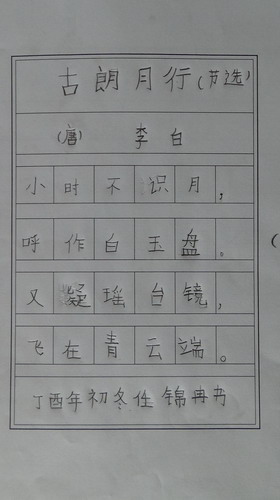 古朗月行(节选)
(唐) 李白
小时不识月,
呼作白玉盘。
又疑瑶台镜,
飞在青云端。
丁酉年初冬任锦冉书